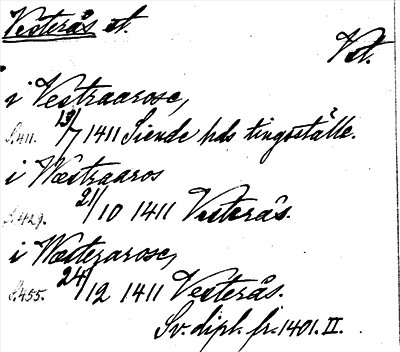 Vesterås st.
Vst.
i Vestraarosc,
S.411. 13/7 1411 Siende hds tingsställe.
i Wæstraaros
S.429. 21/10 1411 Vesterås.
i Wæstezarosc,
S.455. 24/12 1411 Vesterås.
Sv. dipl. fr. 1401. II.